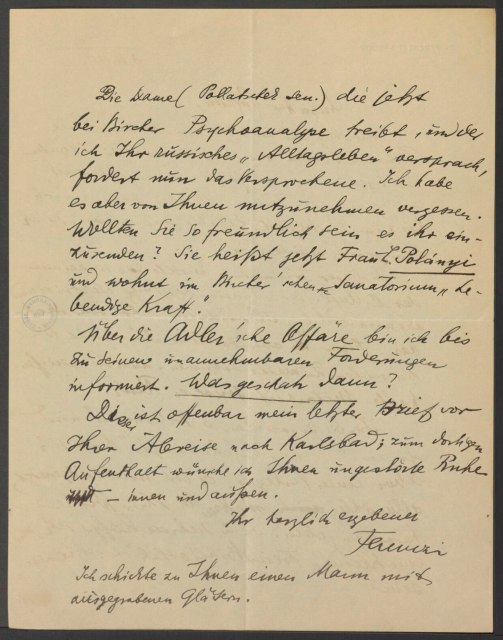 Die Dame (Pollatschek sen.) die jetzt
bei Bircher Psychoanalyse treibt, und der
ich Ihr russisches „Alltagsleben“ versprach,
fordert nun das Versprochene. Ich habe
es aber von Ihnen mitzunehmen vergessen.
Wollten Sie so freundlich sein es ihr ein-
zusenden? Sie heißt jetzt Frau L. Polányi
und wohnt im Bircher'schen Sanatorium „Le-
bendige Kraft“.
Über die Adler'sche Affäre bin ich bis
zu seinen unannehmbaren Forderungen
informiert. Was geschah dann?
Dieser ist offenbar mein letzter Brief vor
Ihrer Abreise nach Karlsbad; zum dortigen
Aufenthalt wünsche ich Ihnen ungestörte Ruhe
– innen und außen.
Ihr herzlich ergebener
Ferenczi
Ich schickte zu Ihnen einen Mann mit
ausgegrabenen Gläsern.